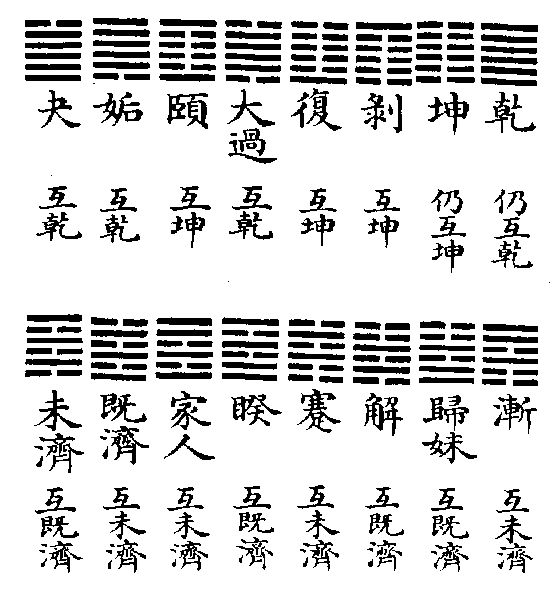 乾 仍互乾
坤 仍互坤
剝 互坤
復 互坤
大過 互乾
頤 互坤
姤 互乾
夬 互乾
漸 互未濟
歸妹 互既濟
解 互既濟
蹇 互未濟
睽 互既濟
家人 互未濟
既濟 互未濟
未濟 互既濟